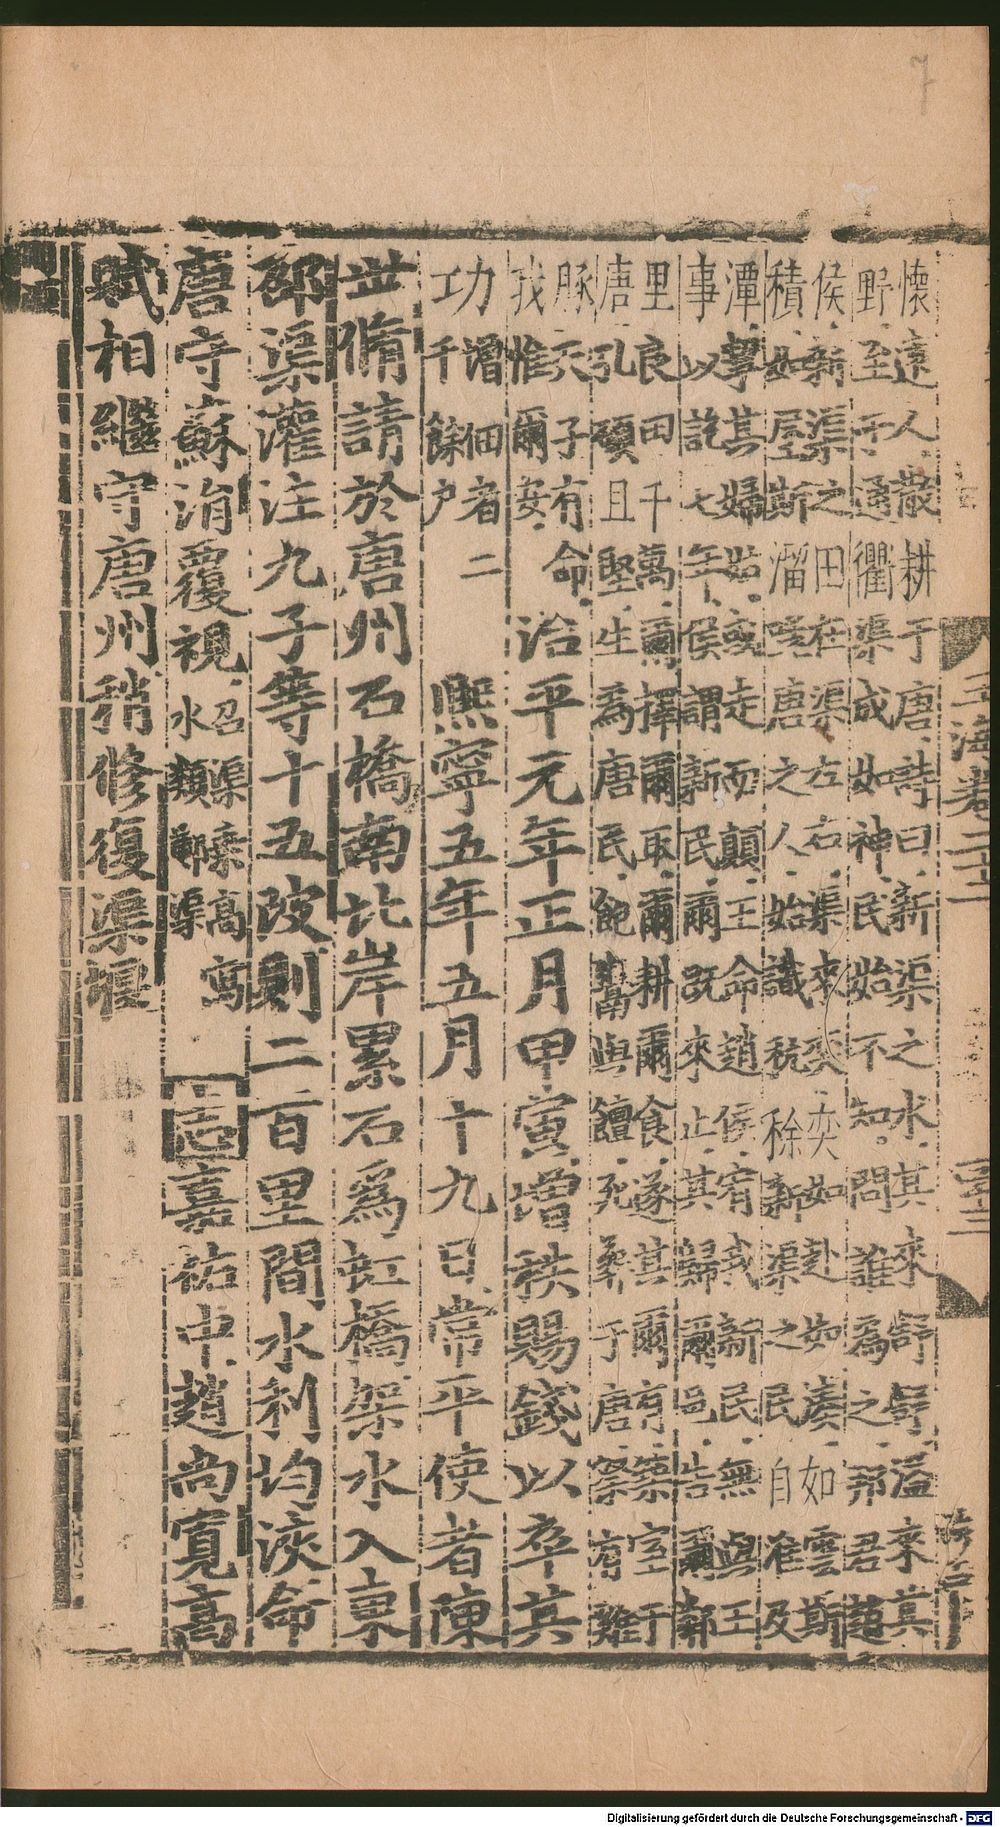 懷遠人散耕于唐詩曰新渠之水其來舒舒溢來其
野至于通衢渠成如神民始不知問誰爲之邦君趙
侯新渠之田在渠左右渠來奕奕如赴如湊如雲斯
積如屋斯溜嗟唐之人始識秔稌新渠之民自淮及
潭挈其婦姑或走而顛王命趙侯宥我新民無與王
事以訖七年侯謂新民爾既來止其歸爾邑告爾鄰
里良田千萬爾擇爾取爾耕爾食遂其爾有築室于
唐孔碩且堅生爲唐民飽粥與饘死葬于唐祭有雞
豚天子有命
我惟爾安
治平元年正月甲寅增秩賜錢以卒其
功增佃者二
千餘户
熙寧五年五月十九日常平使者陳
世脩請於唐州石橋南北岸累石爲虹橋架水入東
邵渠灌注九子等十五陂則二百里間水利均浹命
唐守蘇涓覆視召渠埶高寫
水類鄭渠
志嘉祐中趙尚寬高
賦相繼守唐州稍修復渠堰
玉海卷二十二
Digitalisierung gefördert durch die Deutsche Forschungsgemeinschaft - DFG